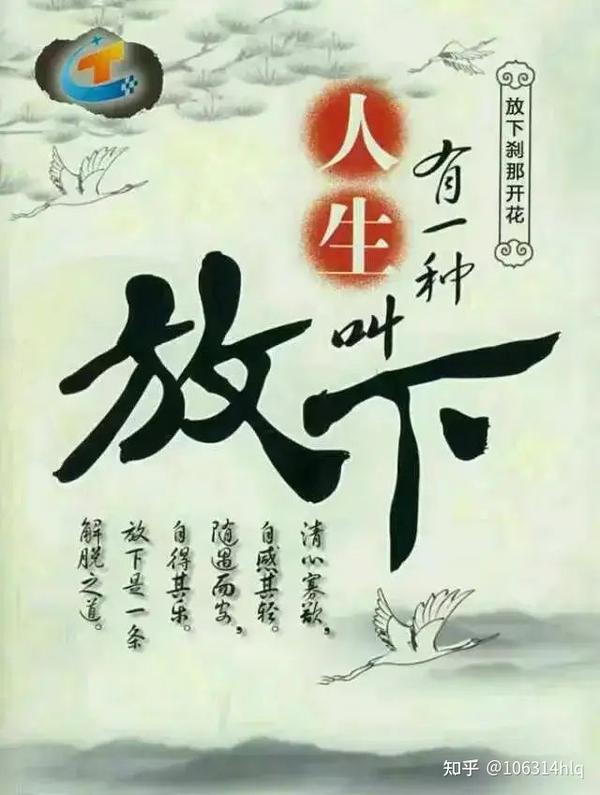 放下刹那开花
人生
有一种
叫
放下
清心寡欲，
自感其轻。
随遇而安，
自得其乐。
放下是一条
解脱之道。
知乎 @106314hlq